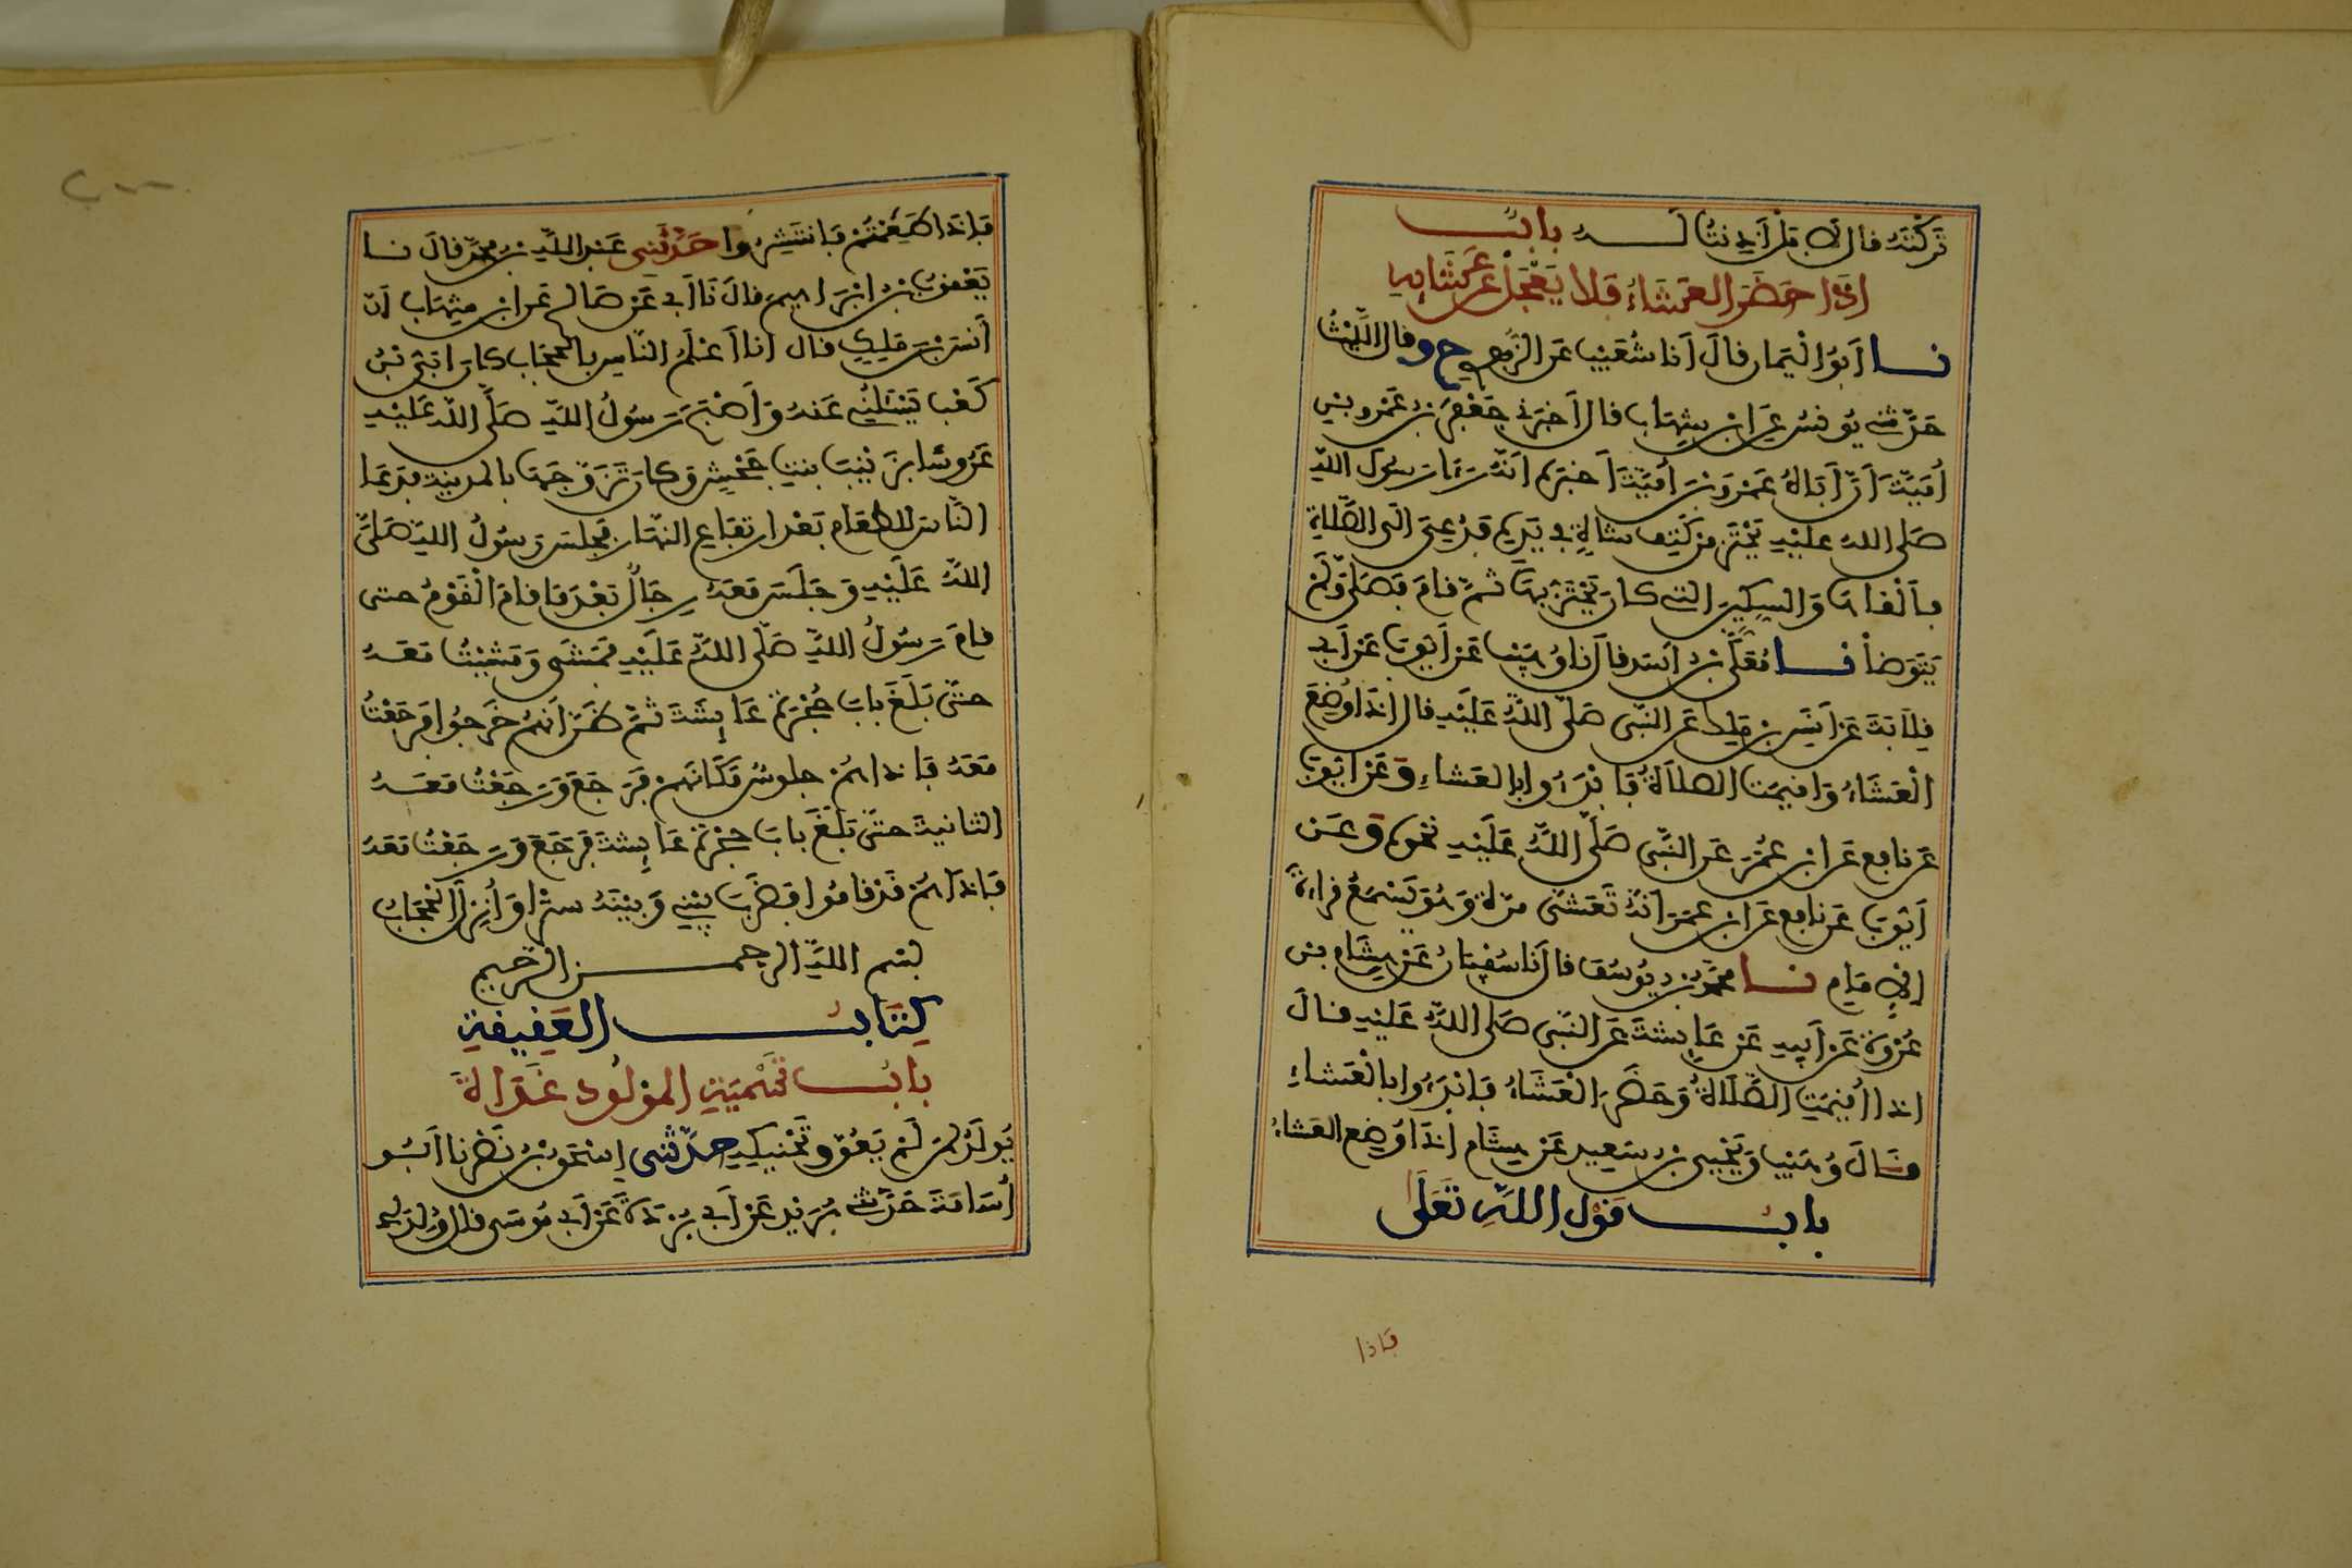 تركته قال لا بل أذنت له باب
إذا حضر العشاء فلا يعجل عن عشائه
نا أبو اليمان قال أنا شعيب عن الزهري ح وقال الليث
حدثني يونس عن ابن شهاب قال أخبرني جعفر بن عمرو بن
أمية أن أباه عمرو بن أمية أخبره أنه رءا رسول الله
صلى الله عليه يحتز من كتف شاة في يده فدعي الى الصلاة
فألقاها والسكين التي كان يحتز بها ثم قام فصلى ولم
يتوضأ نا معلى بن أسد قال نا وهيب عن أيوب عن أبي
قلابة عن أنس بن ملك عن النبي صلى الله عليه قال إذا وضع
العشاء وأقيمت الصلاة فابدءوا بالعشاء وعن أيوب
عن نافع عن ابن عمر عن النبي صلى الله عليه نحوه وعن
أيوب عن نافع عن ابن عمر أنه تعشى مرة وهو يسمع قراءة
الإمام نا محمد بن يوسف قال نا سفيان عن هشام بن
عروة عن أبيه عن عائشة عن النبي صلى الله عليه قال
إذا أقيمت الصلاة وحضر العشاء فابدءوا بالعشاء
وقال وهيب ويحيى بن سعيد عن هشام إذا وضع العشاء
باب قول الله تعلى
فإذا
فإذا طعمتم فانتشروا حدثني عبد الله بن محمد قال نا
يعقوب بن ابراهيم قال نا أبي عن صالح عن ابن شهاب أن
أنس بن ملك قال أنا أعلم الناس بالحجاب كان أبي بن
كعب يسئلني عنه وأصبح رسول الله صلى الله عليه
عروسا بزينب بنت جحش وكان تزوجها بالمدينة فدعا
الناس للطعام بعد ارتفاع النهار فجلس رسول الله صلى
الله عليه وجلس معه رجال بعد ما قام القوم حتى
قام رسول الله صلى الله عليه فمشى ومشيت معه
حتى بلغ باب حجرة عائشة ثم ظن أنهم خرجوا فرجعت
معه فإذا هم جلوس مكانهم فرجع ورجعت معه
الثانية حتى بلغ باب حجرة عائشة فرجع ورجعت معه
فإذا هم قد قاموا فضرب بيني وبينه سترا وأنزل الحجاب
بسم الله الرحمن الرحيم
كتاب العقيقة
باب تسمية المولود غداة
يولد لمن لم يعق وتحنيكه حدثني إسحق بن نصر نا أبو
أسامة حدثني بريد عن أبي بردة عن أبي موسى قال ولد لي